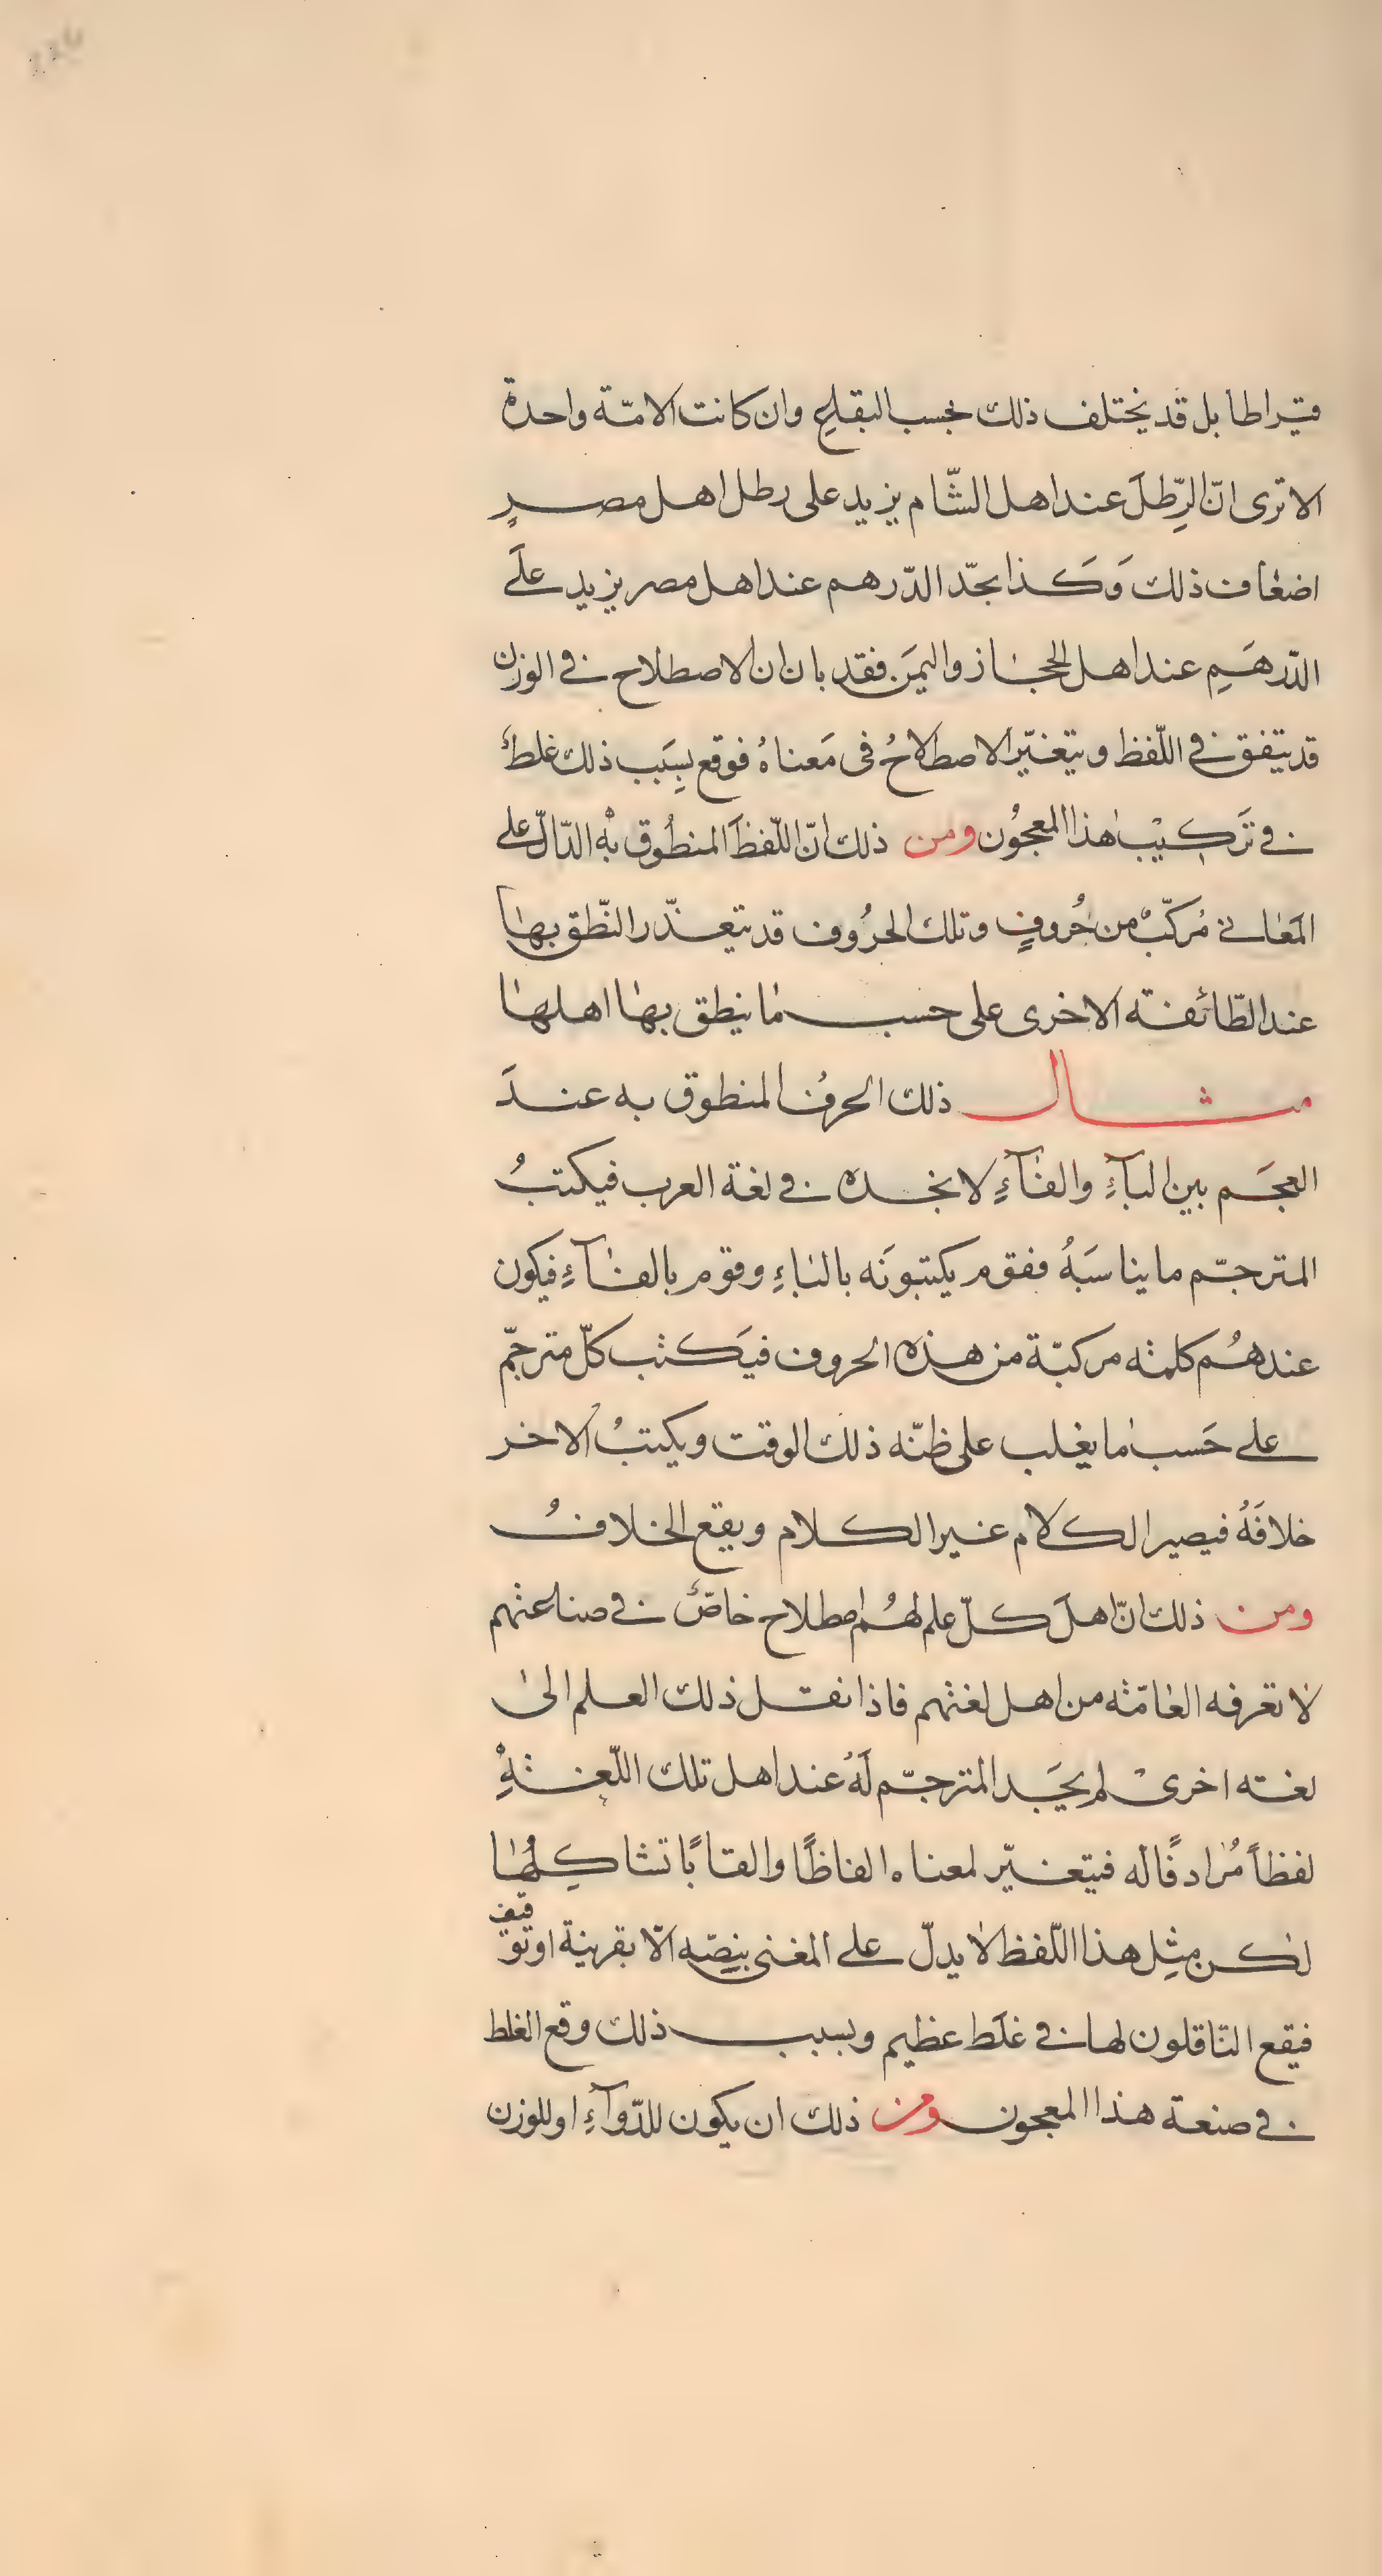 قيراطا بل قد يختلف ذلك بحسب البقليم وان كانت الامّة واحدة
الا ترى انّ الرِّطلَ عند اهل الشّام يزيد على رطل اهل مصرٍ
اضعاف ذلك وَكَذا بجّد الدّرهم عند اهل مصر يزيد علَى
الدّرهَمِ عند اهل الحجاز واليمَن فقد بان ان الاصطلاح فى الوزن
قد يتفق فى اللّفظ ويتغيّر الاصطلاحُ فى مَعناهُ فوقع بِسبَب ذلك غلطٌ
فى تَركيْب هذا المعجُون ومن ذلك انّ اللّفظَ المنطُوق بهِ الدّالّ على
المَعانى مُركّبٌ من حُروفٍ وتلك الحرُوف قد تتعذّر النّطق بها
عند الطّائفته الاخرى على حسب ما ينطق بها اهلها
مثال ذلك الحرفُ المنطوق به عندَ
العجَم بين الباءِ والفاءِ لا نجده فى لغة العرب فيكتبُ
المترجّم ما يناسَبَهُ فقوم يكتبونَه بالباءِ وقوم بالفاءِ فيكون
عندهُم كلمته مركبّة من هذه الحروف فيَكتب كلّ مترجّم
على حَسب ما يغلب على ظنّه ذلك الوقت ويكتبُ الاخر
خلافَهُ فيصير الكلام غير الكلام ويقع الخلافُ
ومن ذلك انّ اهلَ كلّ علم لهُم اصطلاح خاصٌّ فى صناعتهم
لا تعرفه العامّته من اهل لغتهم فاذا نقل ذلك العلم الى
لغته اخرىْ لم يجَد المترجّم لَهُ عند اهل تلك اللّغتهِ
لفظاً مُرادفًا له فيتغيّر لمعناه الفاظًا والقابًا تشاكِلُها
لكن مِثِل هذا اللّفظ لا يدلّ على المغنى بنِصّه الّا بقرينة او توقيف
فيقع النّاقلون لها فى غلَط عظيم وبسبب ذلك وقع الغلط
فى صنعة هذا المعجون ومن ذلك ان يكون للدّواءِ او للوزن